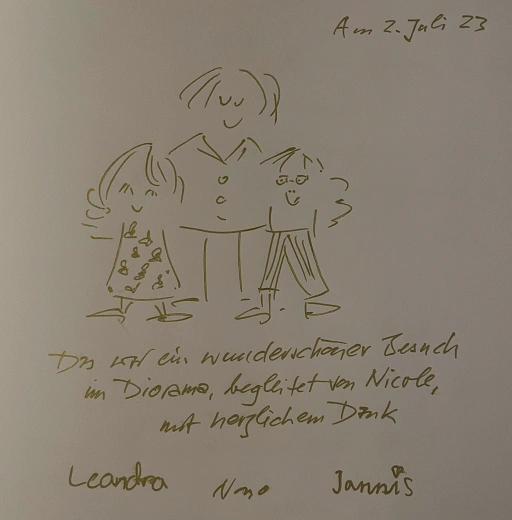 Am 2. Juli 23
Das war ein wunderschöner Besuch
im Diorama, begleitet von Nicole,
mit herzlichem Dank
Leandra Nono Jannis